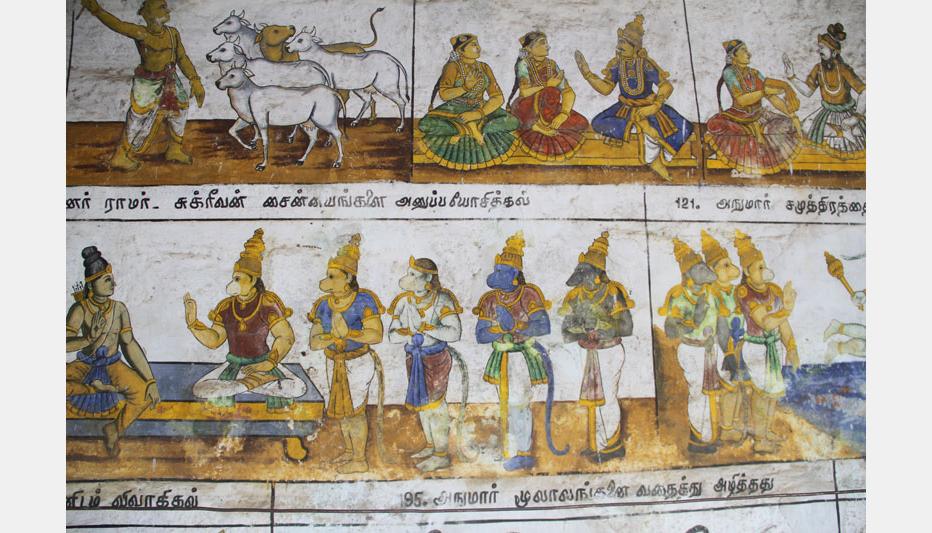 னர் ராமர்- சுக்ரீவன் சைன்யங்களை அனுப்பயோசித்தல்
121. அநுமார் சமுத்திரத்தை
னிடம் விவாகிகல்
195. அநுமார் மூலாலங்களை வதைத்து அழித்தது